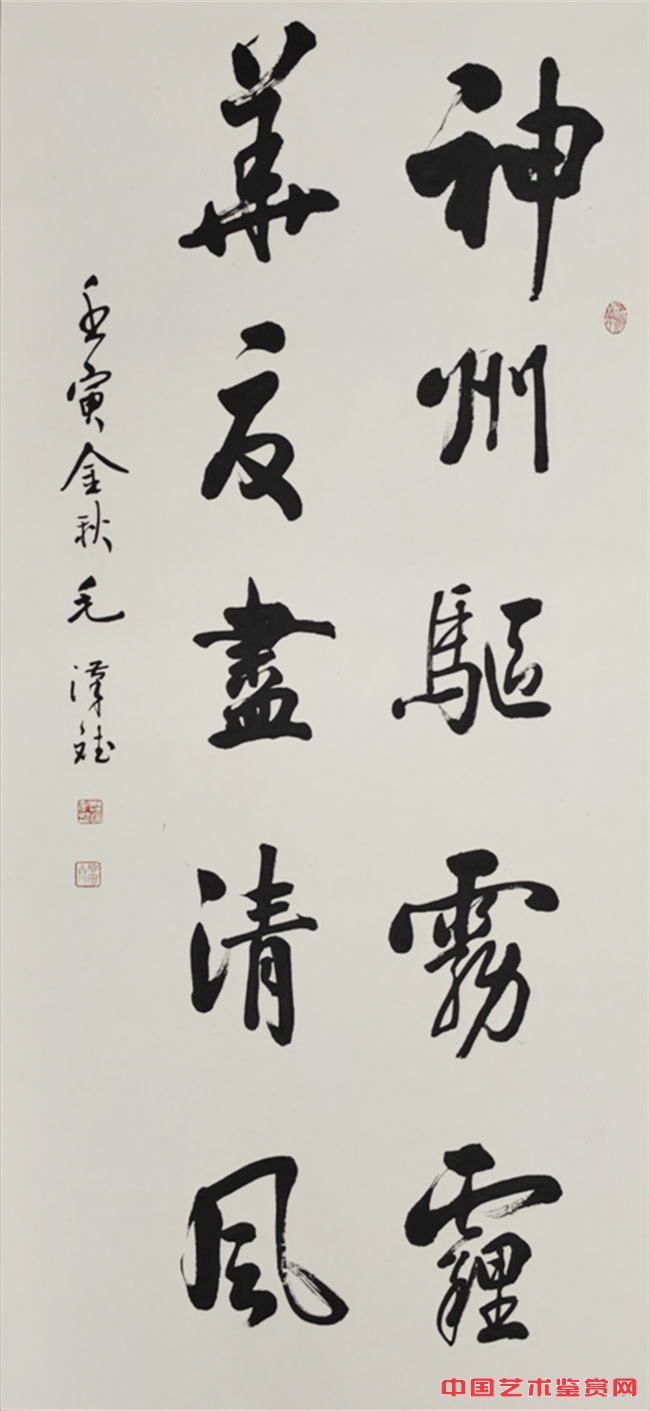 神州驅霧霾
華夏盡清風
壬寅金秋毛漢斌
中国艺术鉴赏网